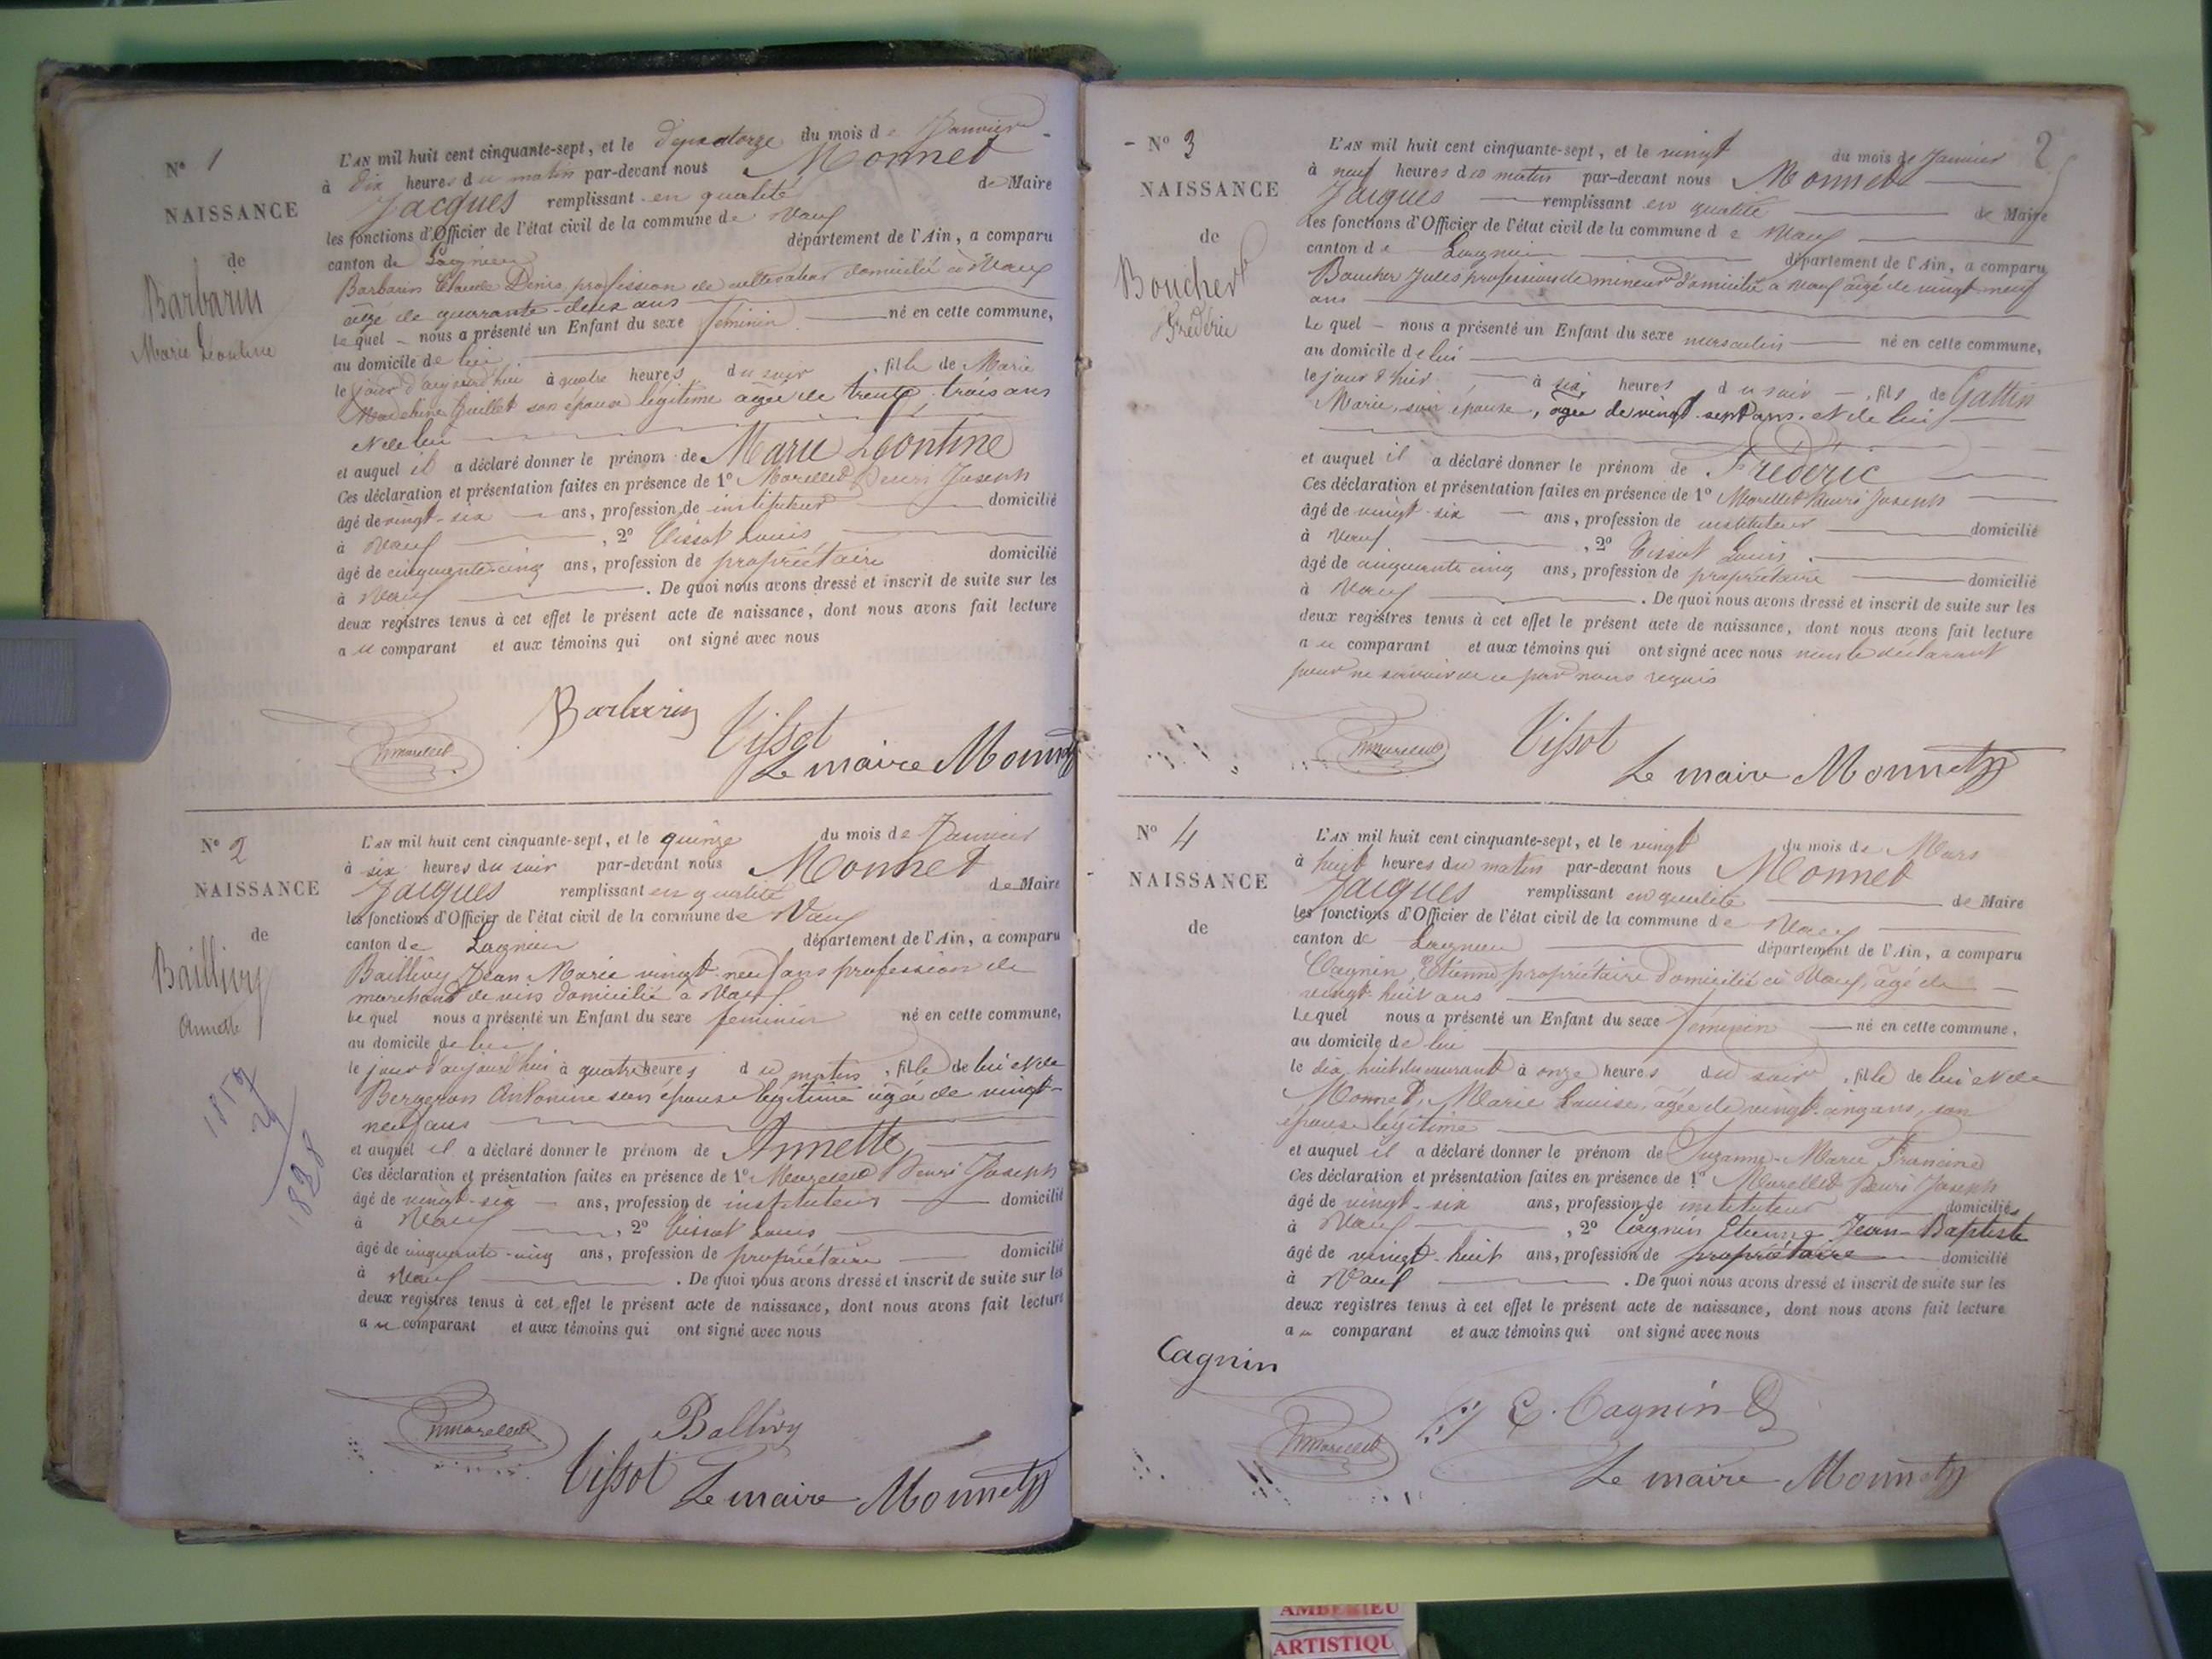 N° 1
NAISSANCE
de
Barbarin
Marie Léontine
L'AN mil huit cent cinquante-sept, et le du mois de Janvier
à dix heures du matin par-devant nous Monnet
Jacques remplissant en qualité de Maire
les fonctions d'Officier de l'état civil de la commune de Vaux
canton de Lagnieu département de l'Ain, a comparu
Barbarin Claude Denis profession de cultivateur domicilié à Vaux
âgé de quarante-deux ans
Lequel nous a présenté un Enfant du sexe féminin né en cette commune,
au domicile de lui
le jour d'aujourd'hui à quatre heures du soir, fille de Marie
Guillet son épouse légitime agée de trente trois ans
et de lui
et auquel il a déclaré donner le prénom de Marie Léontine
Ces déclaration et présentation faites en présence de 1° Morellet Henri Joseph
âgé de vingt-six ans, profession de instituteur domicilié
à Vaux, 2° Tissot Louis
âgé de cinquante-cinq ans, profession de propriétaire domicilié
à Vaux. De quoi nous avons dressé et inscrit de suite sur les
deux registres tenus à cet effet le présent acte de naissance, dont nous avons fait lecture
au comparant et aux témoins qui ont signé avec nous
Barbarin
HMorellet
Tissot
Le maire Monnet
N° 2
NAISSANCE
de
Baillivy
Annette
1857
29
1828
L'AN mil huit cent cinquante-sept, et le quinze du mois de Janvier
à six heures du soir par-devant nous Monnet
Jacques remplissant en qualité de Maire
les fonctions d'Officier de l'état civil de la commune de Vaux
canton de Lagnieu département de l'Ain, a comparu
Baillivy Jean Marie vingt-neuf ans profession de
marchand de vin domicilié à Vaux
Lequel nous a présenté un Enfant du sexe féminin né en cette commune,
au domicile de lui
le jour d'aujourd'hui à quatre heures du matin, fille de lui et de
Bergeron Antonine son épouse légitime agée de vingt-
neuf ans
et auquel il a déclaré donner le prénom de Annette
Ces déclaration et présentation faites en présence de 1° Morellet Henri Joseph
âgé de vingt-six ans, profession de instituteur domicilié
à Vaux, 2° Tissot Louis
âgé de cinquante-cinq ans, profession de propriétaire domicilié
à Vaux. De quoi nous avons dressé et inscrit de suite sur les
deux registres tenus à cet effet le présent acte de naissance, dont nous avons fait lecture
au comparant et aux témoins qui ont signé avec nous
HMorellet
Ballivy
Tissot Le maire Monnet
2
N° 3
NAISSANCE
de
Boucher
Frédéric
L'AN mil huit cent cinquante-sept, et le vingt du mois de Janvier
à neuf heures du matin par-devant nous Monnet
Jacques remplissant en qualité de Maire
les fonctions d'Officier de l'état civil de la commune de Vaux
canton de Lagnieu département de l'Ain, a comparu
Boucher Jules profession de mineur domicilié à Vaux âgé de vingt-neuf
ans
Lequel nous a présenté un Enfant du sexe masculin né en cette commune,
au domicile de lui
le jour d'hier à six heures du soir, fils de Gattin
Marie, son épouse, agée de vingt-sept ans. et de lui
et auquel il a déclaré donner le prénom de Frédéric
Ces déclaration et présentation faites en présence de 1° Morellet Henri Joseph
âgé de vingt-six ans, profession de instituteur domicilié
à Vaux, 2° Tissot Louis
âgé de cinquante cinq ans, profession de propriétaire domicilié
à Vaux. De quoi nous avons dressé et inscrit de suite sur les
deux registres tenus à cet effet le présent acte de naissance, dont nous avons fait lecture
au comparant et aux témoins qui ont signé avec nous non le déclarant
pour ne savoir de ce par nous requis
HMorellet
Tissot
Le maire Monnet
N° 4
NAISSANCE
de
L'AN mil huit cent cinquante-sept, et le vingt du mois de Mars
à huit heures du matin par-devant nous Monnet
Jacques remplissant en qualité de Maire
les fonctions d'Officier de l'état civil de la commune de Vaux
canton de Lagnieu département de l'Ain, a comparu
Cagnin Etienne, propriétaire domicilié à Vaux, agé de
vingt-huit ans
Lequel nous a présenté un Enfant du sexe féminin né en cette commune,
au domicile de lui
le dix huit du courant à onze heures du soir, fille de lui et de
Monnet, Marie Louise, agée de vingt-cinq ans, son
épouse légitime
et auquel il a déclaré donner le prénom de Suzanne-Marie Francine
Ces déclaration et présentation faites en présence de 1° Morellet Henri Joseph
âgé de vingt-six ans, profession de instituteur domicilié
à Vaux, 2° Cagnin Etienne Jean-Baptiste
âgé de vingt-huit ans, profession de propriétaire domicilié
à Vaux. De quoi nous avons dressé et inscrit de suite sur les
deux registres tenus à cet effet le présent acte de naissance, dont nous avons fait lecture
au comparant et aux témoins qui ont signé avec nous
Cagnin
HMorellet
E. Cagnin
Le maire Monnet
AMBERIEU
ARTISTIQU